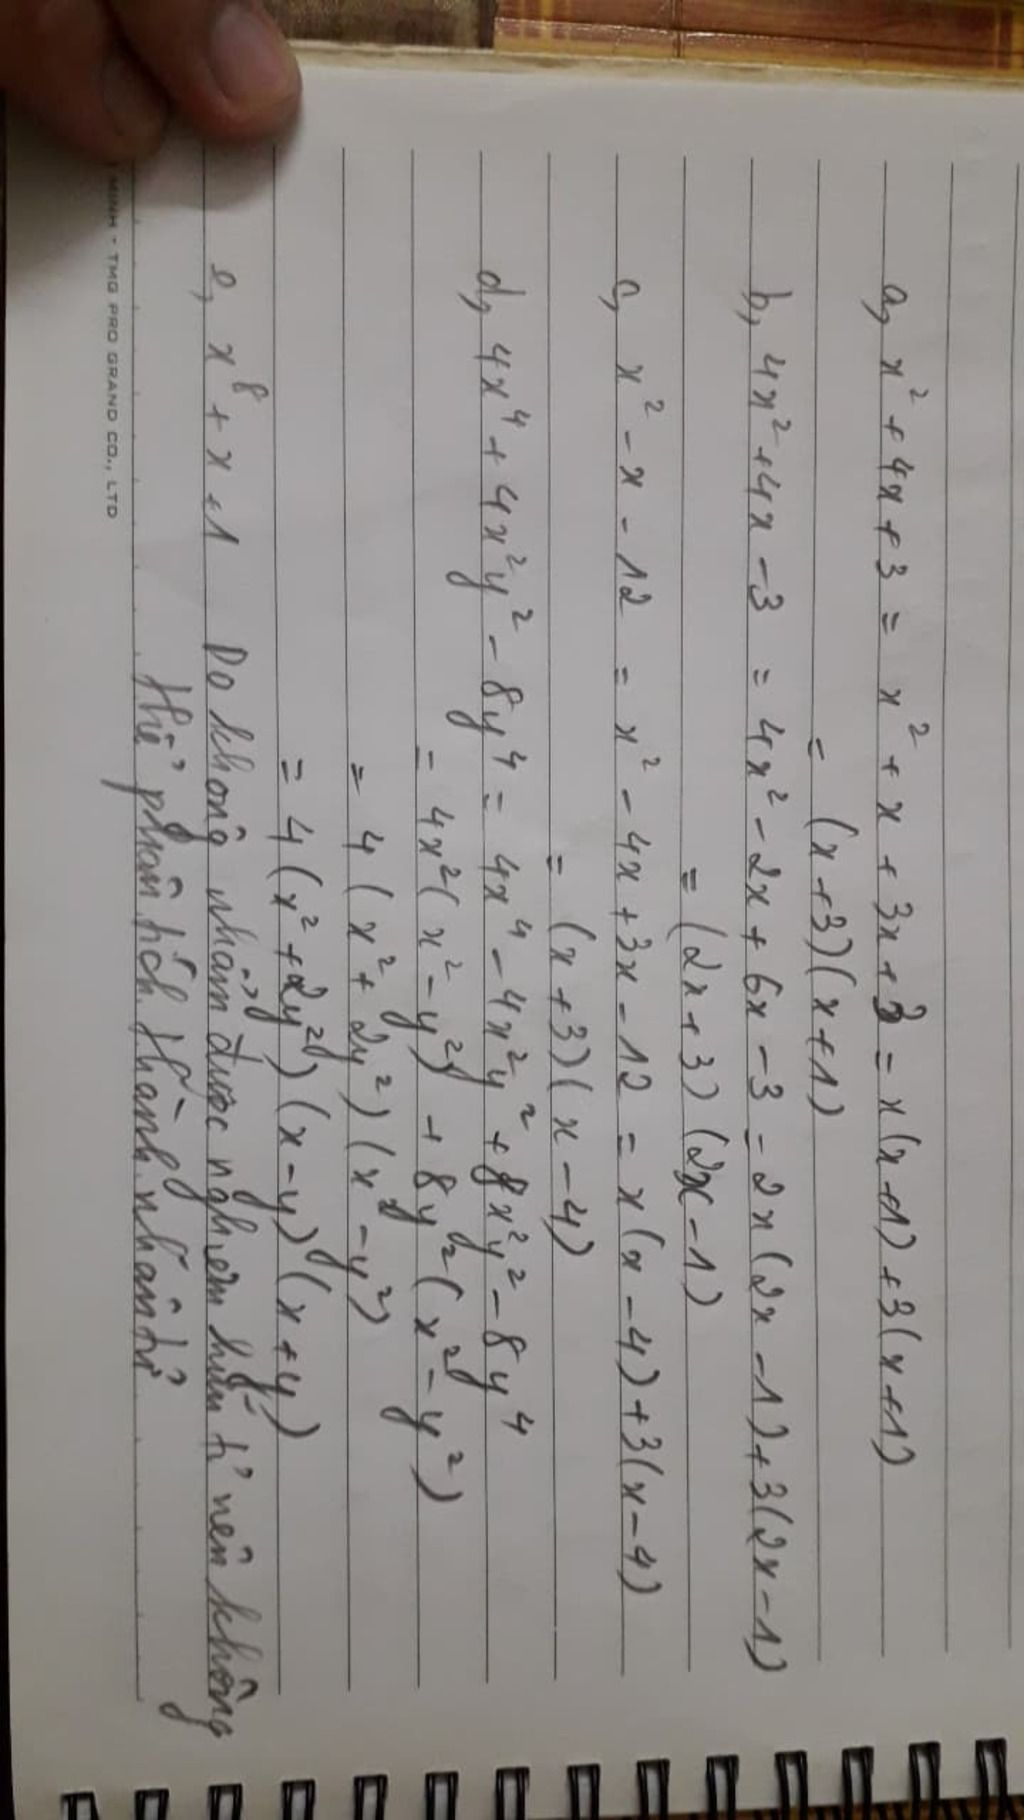 a, x² + 4x + 3 = x² + x + 3x + 3 = x(x+1) + 3(x+1)
= (x+3)(x+1)
b, 4x² + 4x - 3 = 4x² - 2x + 6x - 3 = 2x(2x-1) + 3(2x-1)
= (2x+3)(2x-1)
c, x² - x - 12 = x² - 4x + 3x - 12 = x(x-4) + 3(x-4)
= (x+3)(x-4)
d, 4x⁴ + 4x²y² - 8y⁴ = 4x⁴ - 4x²y² + 8x²y² - 8y⁴
= 4x²(x²-y²) + 8y²(x²-y²)
= 4(x²+2y²)(x²-y²)
= 4(x²+2y²)(x-y)(x+y)
e, x⁸ + x + 1 Do không nhẩm được nghiệm hữu tỉ nên không
thể phân tích thành nhân tử
MINH - TMG PRO GRAND CO., LTD